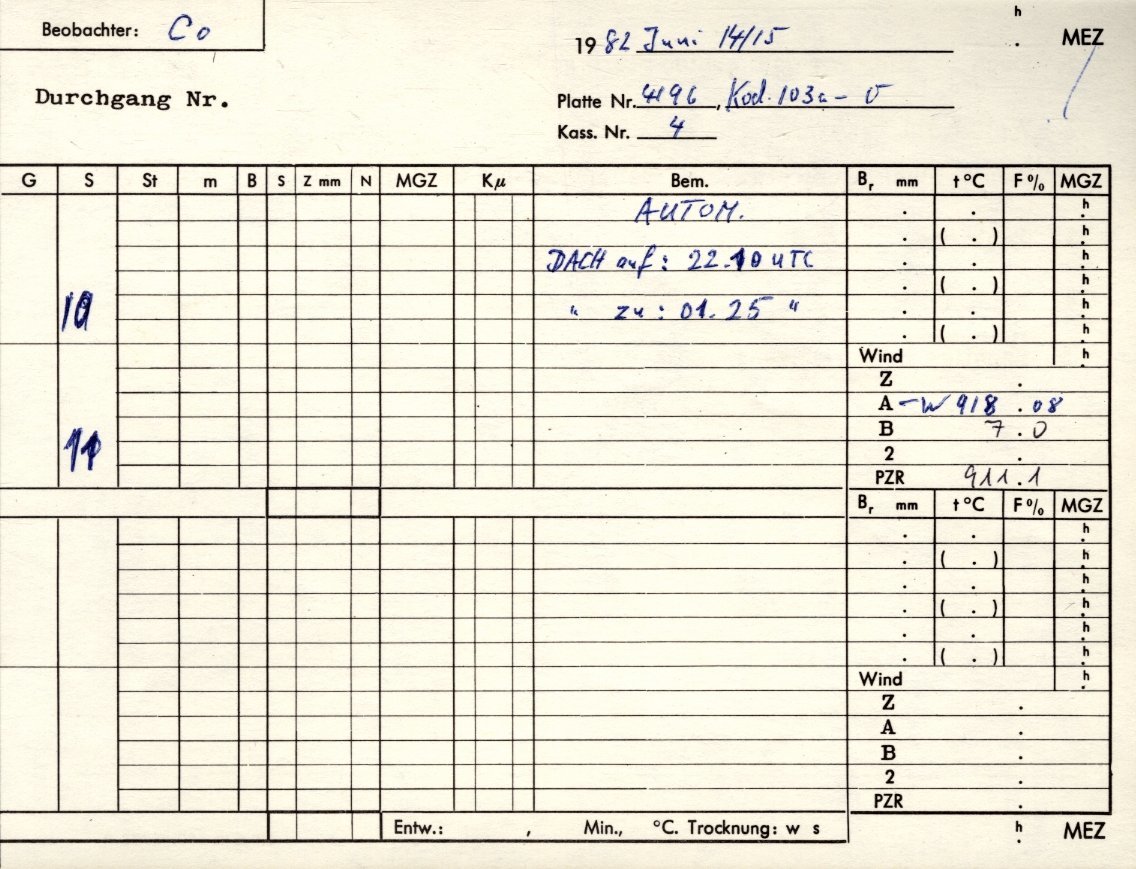 Beobachter: Co
h
1982 Juni 14/15 . MEZ
Durchgang Nr.
Platte Nr. 4196, Kod. 103a-U
Kass. Nr. 4
G S St m B S Z mm N MGZ Kμ Bem. Br mm t °C F % MGZ
AUTOM. . . h
. ( . ) h
DACH auf: 22.10 UTC . . h
. ( . ) h
10 " zu: 01.25 " . . h
. ( . ) h
Wind h
Z .
A -W 918.08
11 B 7.0
2 .
PZR 911.1
Br mm t °C F % MGZ
. . h
. ( . ) h
. . h
. ( . ) h
. . h
. ( . ) h
Wind h
Z .
A .
B .
2 .
PZR .
Entw.: , Min., °C. Trocknung: w s h MEZ